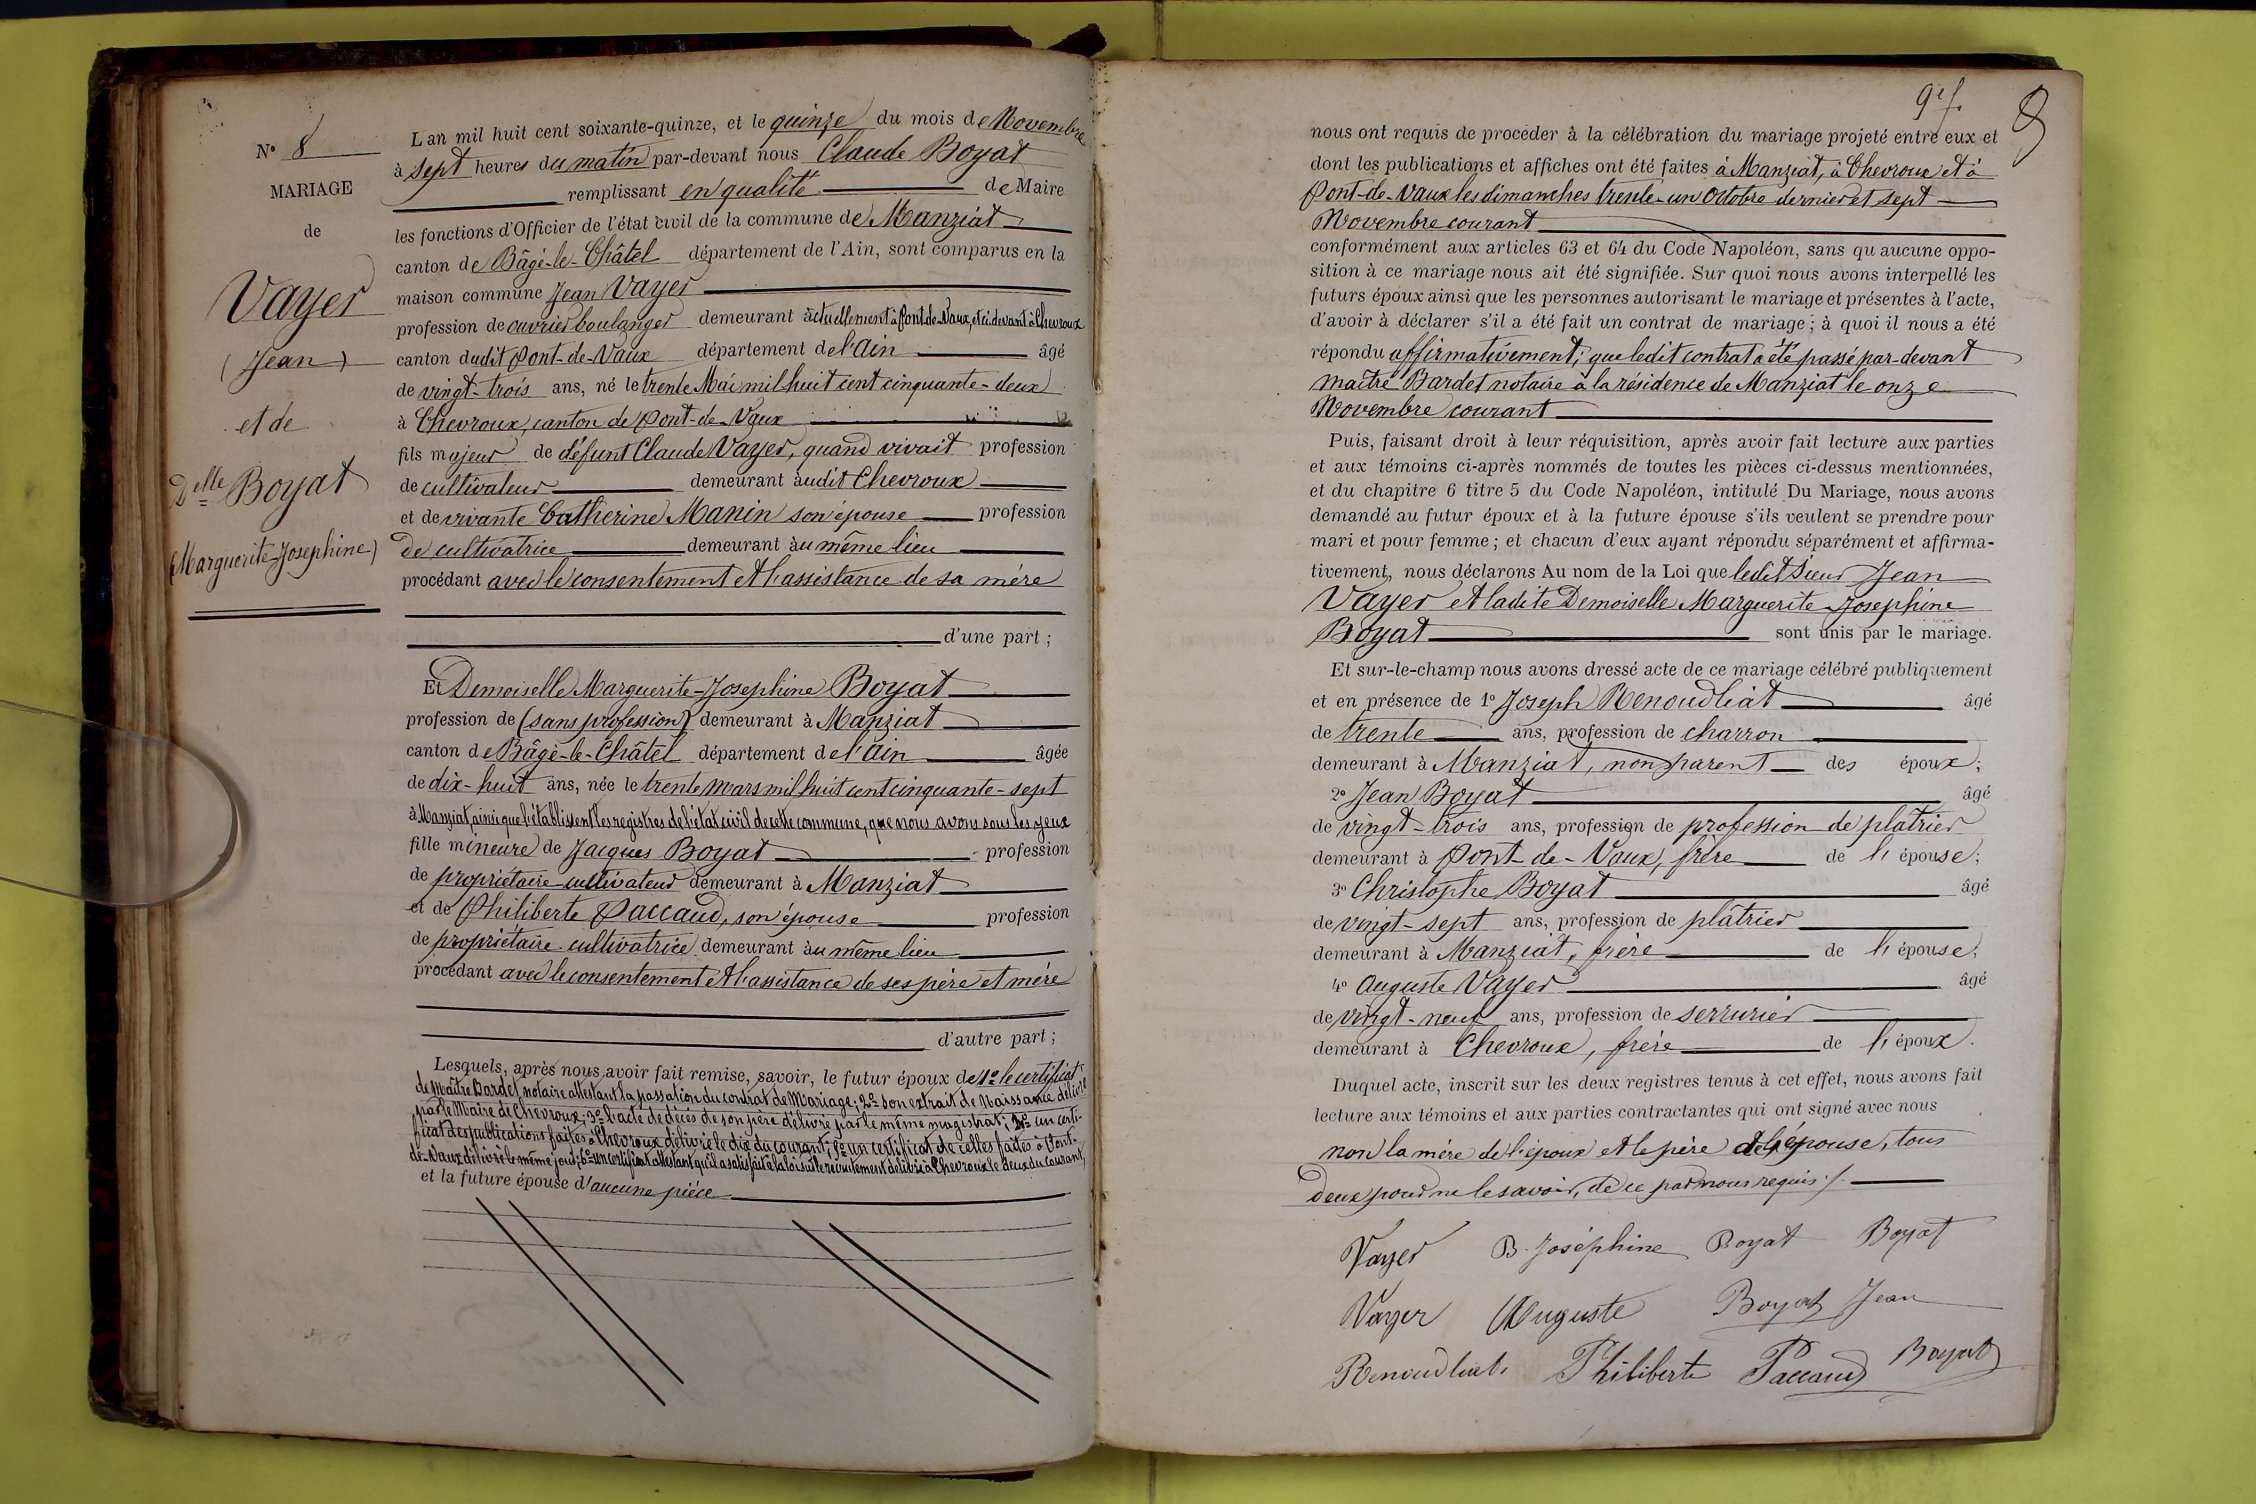 N° 8
MARIAGE
de
Vayer
(Jean)
et de
Delle Boyat
(Marguerite-Josephine)
L'an mil huit cent soixante-quinze, et le quinze du mois de Novembre
à sept heures du matin par-devant nous Claude Boyat
remplissant en qualité de Maire
les fonctions d'Officier de l'état civil de la commune de Manziat
canton de Bâgé-le-Châtel département de l'Ain, sont comparus en la
maison commune Jean Vayer
profession de ouvrier boulanger demeurant actuellement à Pont-de-Vaux, et ci-devant à Chevroux
canton dudit Pont-de-Vaux département de l'Ain âgé
de vingt-trois ans, né le trente Mai mil huit cent cinquante-deux
à Chevroux, canton de Pont-de-Vaux
fils majeur de défunt Claude Vayer, quand vivait profession
de cultivateur demeurant audit Chevroux
et de vivante Catherine Manin son épouse profession
de cultivatrice demeurant au même lieu
procédant avec le consentement et l'assistance de sa mère
d'une part ;
Et Demoiselle Marguerite-Josephine Boyat
profession de (sans profession) demeurant à Manziat
canton de Bâgé-le-Châtel département de l'Ain âgée
de dix-huit ans, née le trente mars mil huit cent cinquante-sept
à Manziat, ainsi que l'établissent les registres de l'état civil de cette commune, que nous avons sous les yeux
fille mineure de Jacques Boyat profession
de propriétaire-cultivateur demeurant à Manziat
et de Philiberte Paccaud, son épouse profession
de propriétaire-cultivatrice demeurant au même lieu
procédant avec le consentement et l'assistance de ses père et mère
d'autre part ;
Lesquels, après nous avoir fait remise, savoir, le futur époux de 1° le certificat
de Maître Bardet notaire attestant la passation du contrat de Mariage ; 2° son extrait de Naissance délivré
par le Maire de Chevroux ; 3° l'acte de décès de son père délivré par le même magistrat ; 4° un certi-
ficat des publications faites à Chevroux délivré le dix du courant ; 5° un certificat de celles faites à Pont-
de-Vaux délivré le même jour ; 6° un certificat attestant qu'il a satisfait à la loi sur le recrutement délivré à Chevroux le deux du courant,
et la future épouse d'aucune pièce
9 8
nous ont requis de procéder à la célébration du mariage projeté entre eux et
dont les publications et affiches ont été faites à Manziat, à Chevroux et à
Pont-de-Vaux les dimanches trente-un Octobre dernier et sept
Novembre courant
conformément aux articles 63 et 64 du Code Napoléon, sans qu'aucune oppo-
sition à ce mariage nous ait été signifiée. Sur quoi nous avons interpellé les
futurs époux ainsi que les personnes autorisant le mariage et présentes à l'acte,
d'avoir à déclarer s'il a été fait un contrat de mariage ; à quoi il nous a été
répondu affirmativement ; que ledit contrat a été passé par-devant
maître Bardet notaire à la résidence de Manziat le onze
Novembre courant
Puis, faisant droit à leur réquisition, après avoir fait lecture aux parties
et aux témoins ci-après nommés de toutes les pièces ci-dessus mentionnées,
et du chapitre 6 titre 5 du Code Napoléon, intitulé Du Mariage, nous avons
demandé au futur époux et à la future épouse s'ils veulent se prendre pour
mari et pour femme ; et chacun d'eux ayant répondu séparément et affirma-
tivement, nous déclarons Au nom de la Loi que ledit Sieur Jean
Vayer et ladite Demoiselle Marguerite-Josephine
Boyat sont unis par le mariage.
Et sur-le-champ nous avons dressé acte de ce mariage célébré publiquement
et en présence de 1° Joseph Renoudliat âgé
de trente ans, profession de charron
demeurant à Manziat, non parent des époux ;
2° Jean Boyat âgé
de vingt-trois ans, profession de profession de plâtrier
demeurant à Pont-de-Vaux, frère de l'épouse ;
3° Christophe Boyat âgé
de vingt-sept ans, profession de plâtrier
demeurant à Manziat, frère de l'épouse ;
4° Auguste Vayer âgé
de vingt-neuf ans, profession de serrurier
demeurant à Chevroux, frère de l'époux.
Duquel acte, inscrit sur les deux registres tenus à cet effet, nous avons fait
lecture aux témoins et aux parties contractantes qui ont signé avec nous
non la mère de l'époux et le père de l'épouse, tous
deux pour ne le savoir, de ce par nous requis ./.
Vayer B. Joséphine Boyat Boyat
Vayer Auguste Boyat Jean
Renoudliat Philiberte Paccaud Boyat